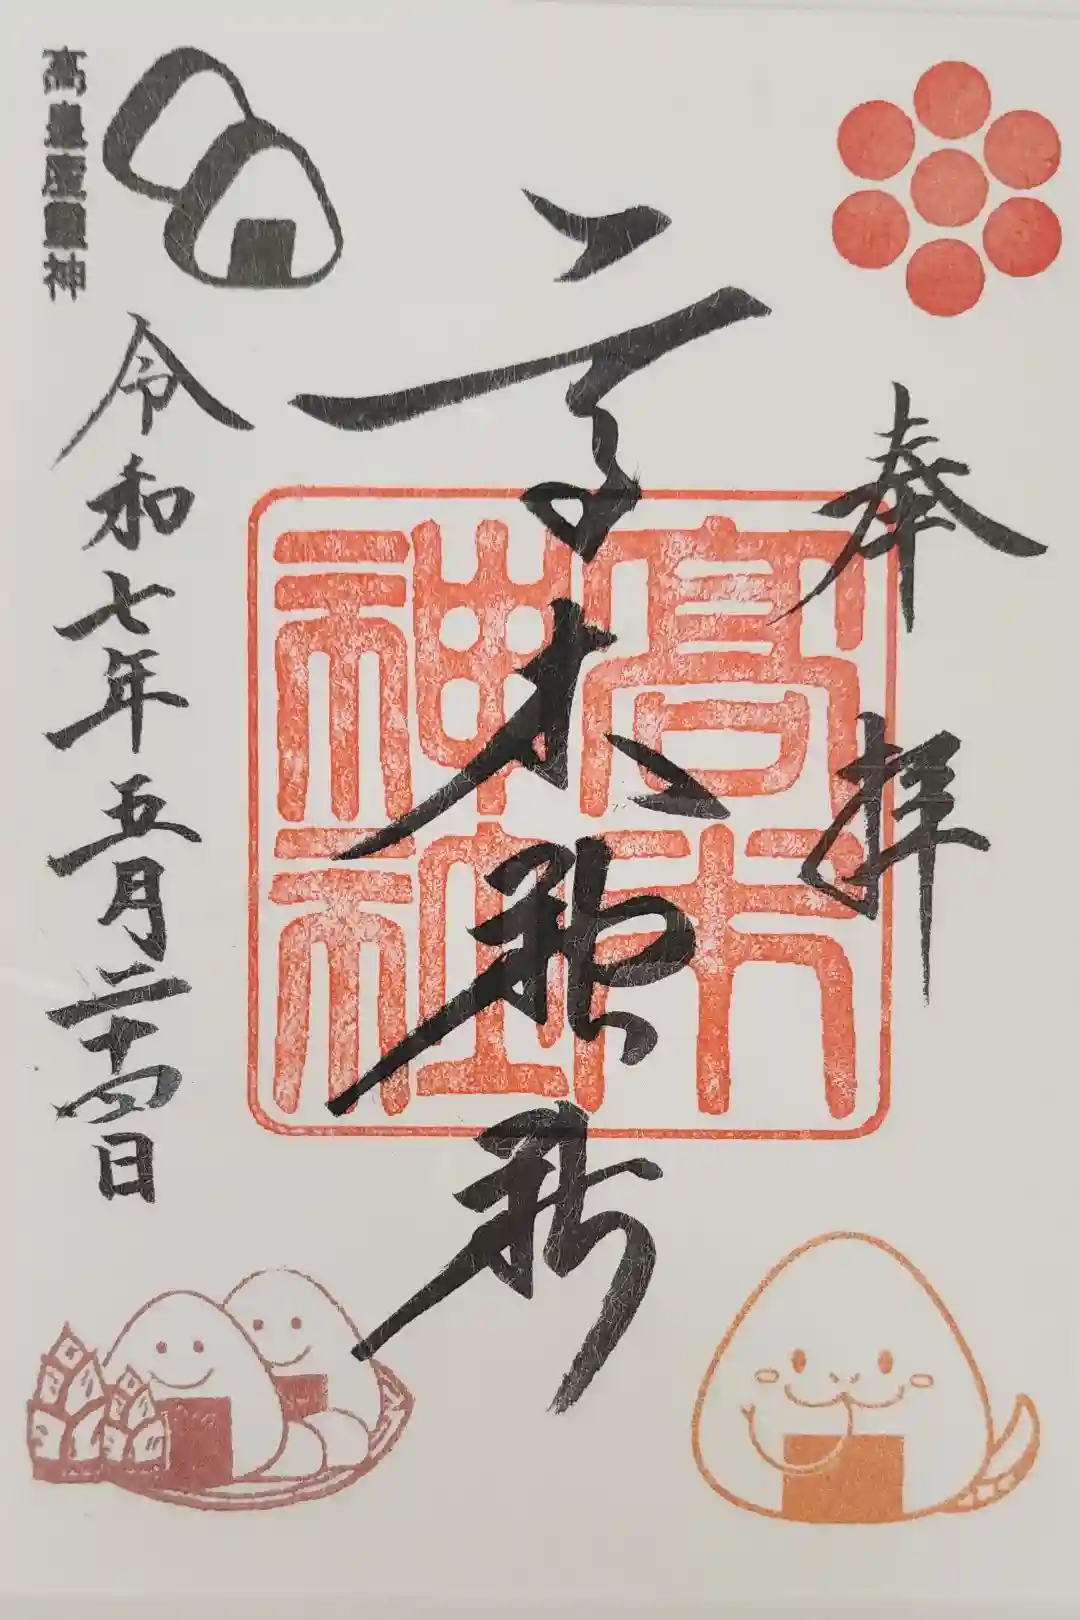 奉拝
高木神社
高木神社
令和七年五月二十四日
高皇産靈神